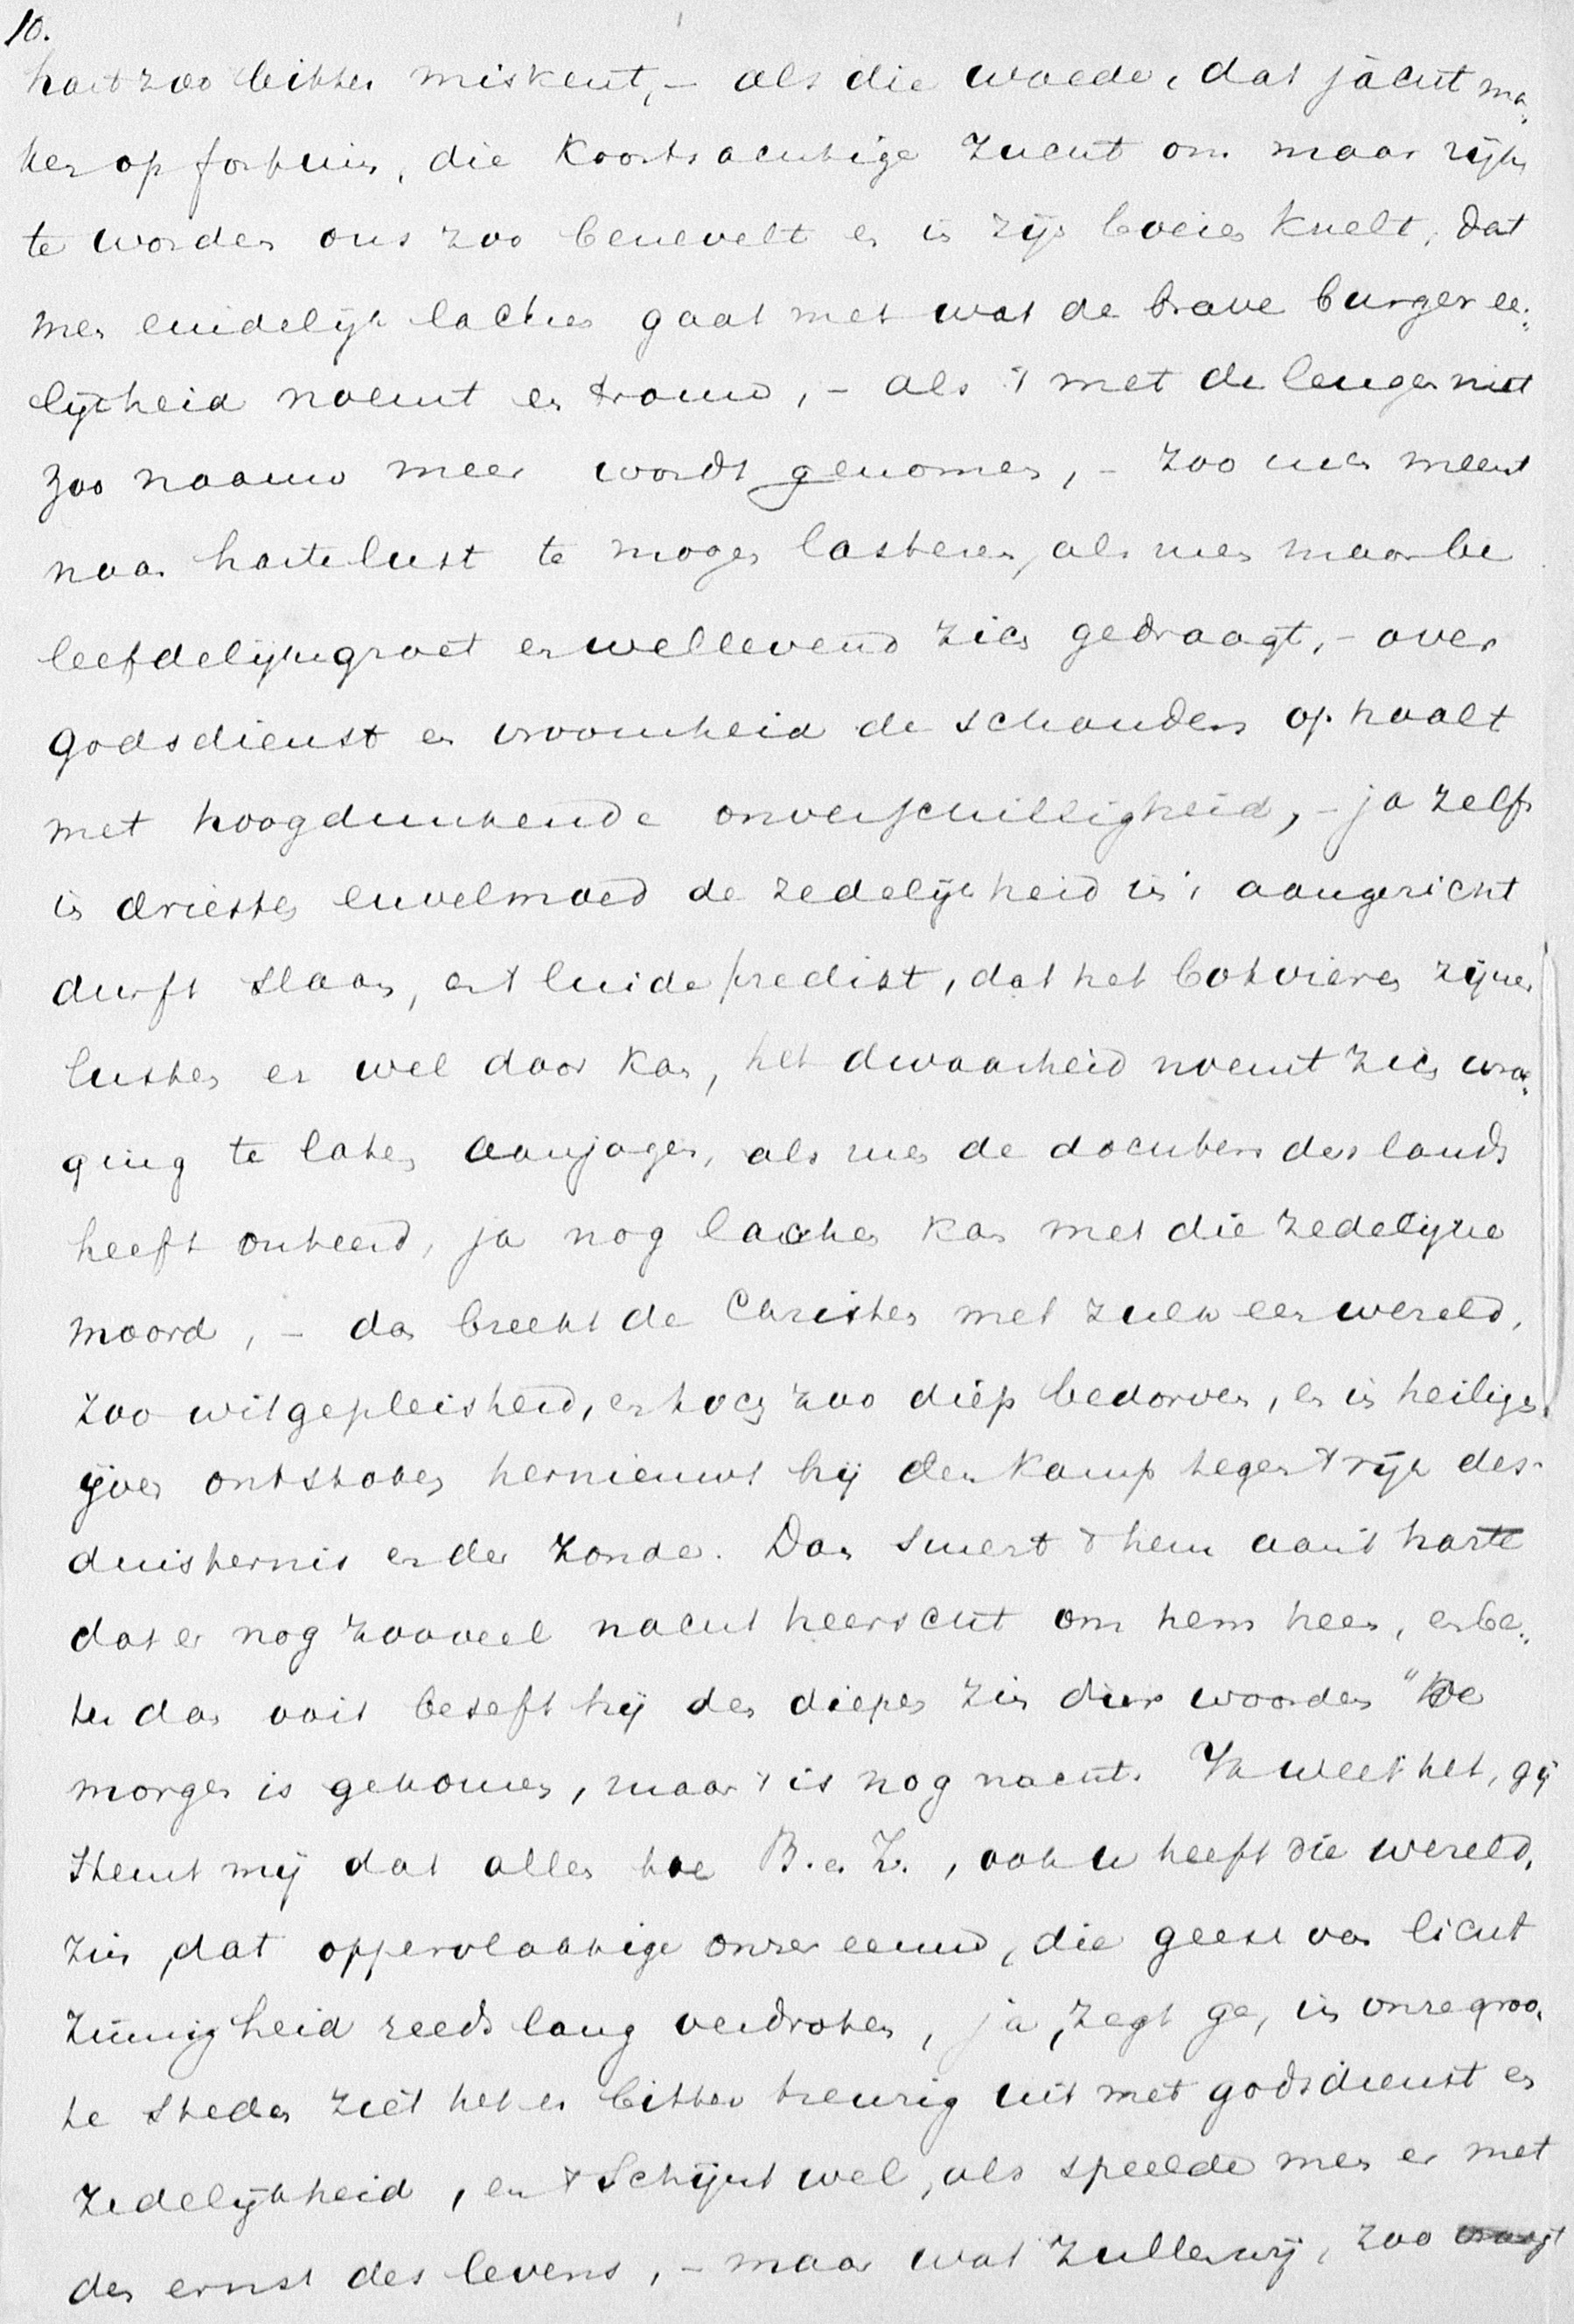 10.
hart zoo bitter miskent, – als die woede, dat jacht ma„
ken op fortuin, die koortsachtige zucht om maar rijk
te worden ons zoo benevelt en in zijn boeien knelt, dat
men eindelijk lachen gaat met wat de brave burger ee„
lijkheid noemt en trouw, – als 't met de leugen niet
zoo naauw meer wordt genomen, – zoo men meent
naar hartelust te mogen lasteren, als men maar be
leefdelijk groet en wellevend zich gedraagt, – over
godsdienst en vroomheid de schouders ophaalt
met hoogdunkende onverschilligheid, – ja zelfs
in driesten euvelmoed de zedelijkheid in 't aangezicht
durft slaan, en 't luide predikt, dat het botvieren zijner
lusten er wel door kan, het dwaasheid noemt zich wroe„
ging te laten aanjagen, als men de dochters des lands
heeft onteerd, ja nog lachen kan met die zedelijke
moord, – dan breekt de Christen met zulk een wereld,
zoo witgepleisterd, en toch zoo diep bedorven, en in heiligen
ijver ontstoken hernieuwt hij den kamp tegen 't rijk der
duisternis en der zonde. Dan smert 't hem aan 't harte
dat er nog zooveel nacht heerscht om hem heen, en be„
ter dan ooit beseft hij den diepen zin dier woorden "De
morgen is gekomen, maar 't is nog nacht. Ik weet het, gij
stemt mij dat alles toe B. en Z., ook u heeft die wereld„
zin, dat oppervlakkige onzer eeuw, die geest van licht
zinnigheid reeds lang verdroten, ja, zegt ge, in onze groo„
te steden ziet het er bitter treurig uit met godsdienst en
zedelijkheid, en 't schijnt wel, als speelde men er met
den ernst des levens, – maar wat zullen wij, zoo vraagt